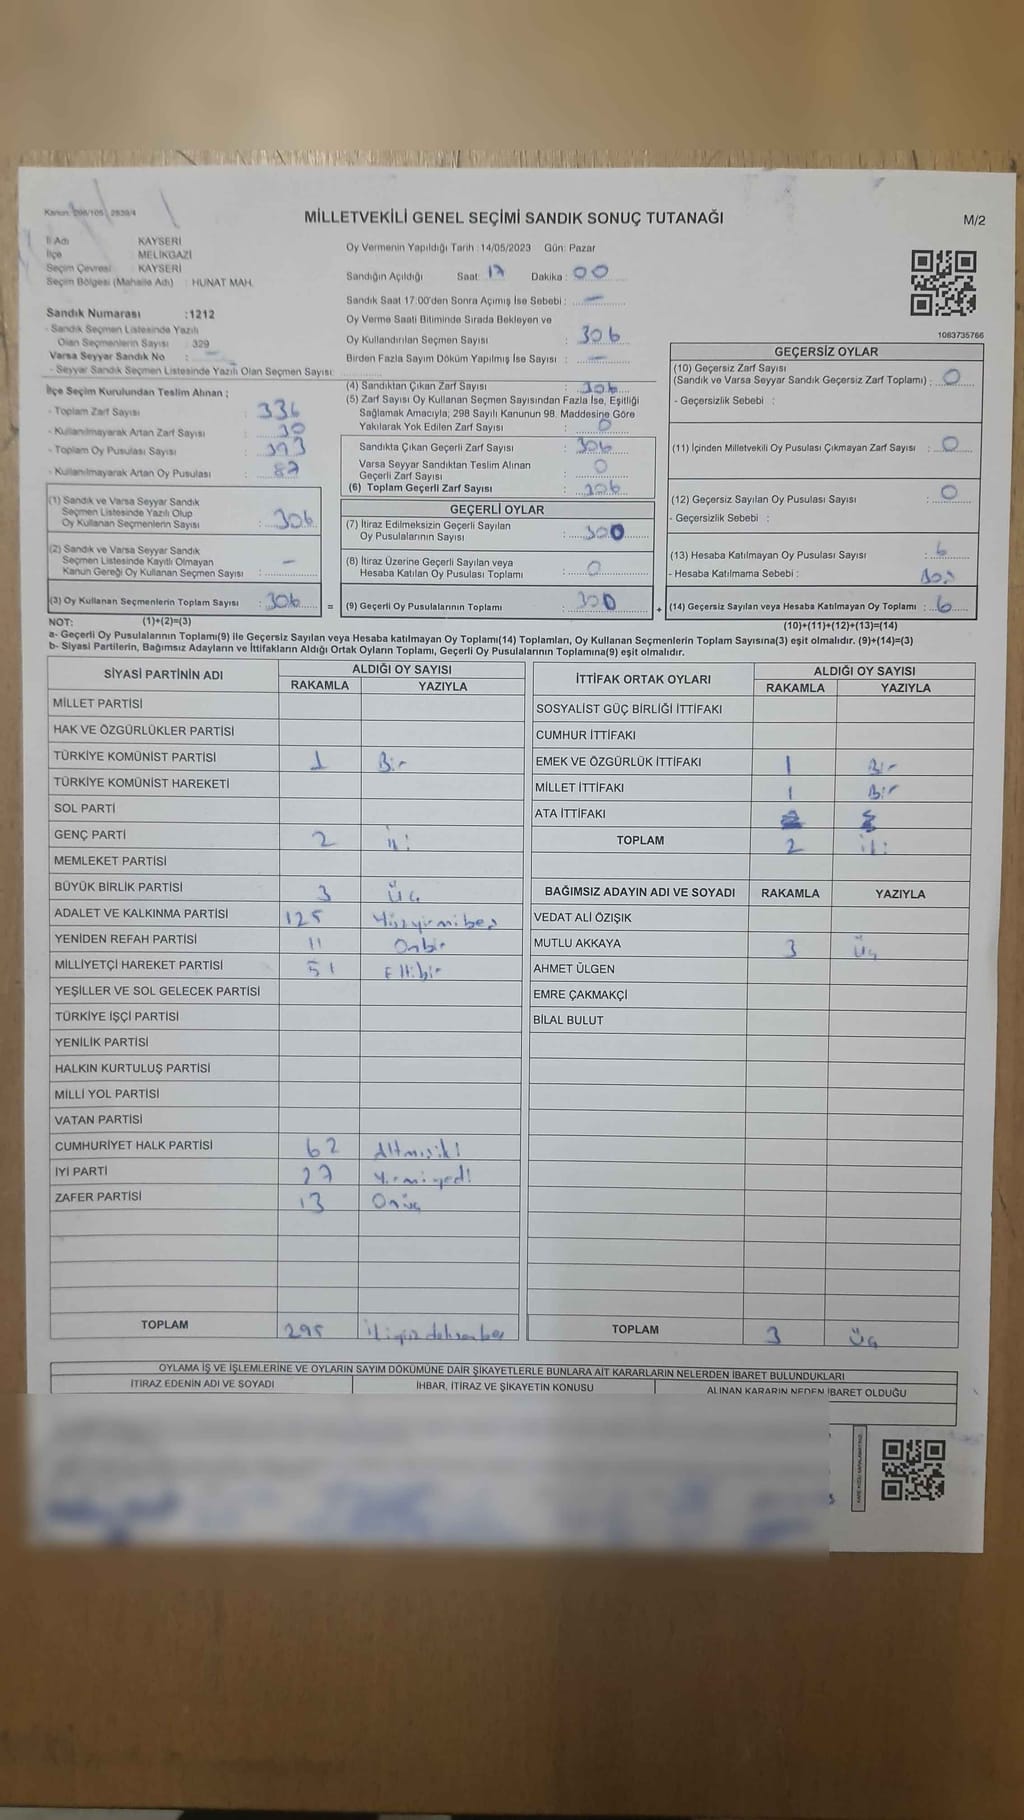 Kanun: 298/105 2839/4
MİLLETVEKİLİ GENEL SEÇİMİ SANDIK SONUÇ TUTANAĞI
M/2
İl Adı KAYSERİ
İlçe MELİKGAZİ
Seçim Çevresi KAYSERİ
Seçim Bölgesi (Mahalle Adı) : HUNAT MAH.
Oy Vermenin Yapıldığı Tarih :14/05/2023 Gün: Pazar
Sandığın Açıldığı Saat: 17 Dakika: 00
Sandık Saat 17:00'den Sonra Açımış İse Sebebi : —
Oy Verme Saati Bitiminde Sırada Bekleyen ve
Oy Kullandırılan Seçmen Sayısı : 306
Birden Fazla Sayım Döküm Yapılmış İse Sayısı : —
1083735766
Sandık Numarası :1212
- Sandık Seçmen Listesinde Yazılı
Olan Seçmenlerin Sayısı : 329
Varsa Seyyar Sandık No : —
- Seyyar Sandık Seçmen Listesinde Yazılı Olan Seçmen Sayısı:
İlçe Seçim Kurulundan Teslim Alınan ;
- Toplam Zarf Sayısı : 336
- Kullanılmayarak Artan Zarf Sayısı : 30
- Toplam Oy Pusulası Sayısı : 393
- Kullanılmayarak Artan Oy Pusulası : 87
(1) Sandık ve Varsa Seyyar Sandık
Seçmen Listesinde Yazılı Olup
Oy Kullanan Seçmenlerin Sayısı : 306
(2) Sandık ve Varsa Seyyar Sandık
Seçmen Listesinde Kayıtlı Olmayan
Kanun Gereği Oy Kullanan Seçmen Sayısı : —
(3) Oy Kullanan Seçmenlerin Toplam Sayısı : 306
(4) Sandıktan Çıkan Zarf Sayısı : 306
(5) Zarf Sayısı Oy Kullanan Seçmen Sayısından Fazla İse, Eşitliği
Sağlamak Amacıyla, 298 Sayılı Kanunun 98. Maddesine Göre
Yakılarak Yok Edilen Zarf Sayısı : 0
Sandıkta Çıkan Geçerli Zarf Sayısı : 306
Varsa Seyyar Sandıktan Teslim Alınan
Geçerli Zarf Sayısı : 0
(6) Toplam Geçerli Zarf Sayısı : 306
GEÇERLİ OYLAR
(7) İtiraz Edilmeksizin Geçerli Sayılan
Oy Pusulalarının Sayısı : 300
(8) İtiraz Üzerine Geçerli Sayılan veya
Hesaba Katılan Oy Pusulası Toplamı : 0
= (9) Geçerli Oy Pusulalarının Toplamı : 300
GEÇERSİZ OYLAR
(10) Geçersiz Zarf Sayısı
(Sandık ve Varsa Seyyar Sandık Geçersiz Zarf Toplamı) : 0
- Geçersizlik Sebebi :
(11) İçinden Milletvekili Oy Pusulası Çıkmayan Zarf Sayısı : 0
(12) Geçersiz Sayılan Oy Pusulası Sayısı : 0
- Geçersizlik Sebebi :
(13) Hesaba Katılmayan Oy Pusulası Sayısı : 6
- Hesaba Katılmama Sebebi : Boş
+ (14) Geçersiz Sayılan veya Hesaba Katılmayan Oy Toplamı : 6
NOT: (1)+(2)=(3)
(10)+(11)+(12)+(13)=(14)
a- Geçerli Oy Pusulalarının Toplamı(9) ile Geçersiz Sayılan veya Hesaba katılmayan Oy Toplamı(14) Toplamları, Oy Kullanan Seçmenlerin Toplam Sayısına(3) eşit olmalıdır. (9)+(14)=(3)
b- Siyasi Partilerin, Bağımsız Adayların ve İttifakların Aldığı Ortak Oyların Toplamı, Geçerli Oy Pusulalarının Toplamına(9) eşit olmalıdır.
SİYASİ PARTİNİN ADI ALDIĞI OY SAYISI
RAKAMLA YAZIYLA
MİLLET PARTİSİ
HAK VE ÖZGÜRLÜKLER PARTİSİ
TÜRKİYE KOMÜNİST PARTİSİ 1 Bir
TÜRKİYE KOMÜNİST HAREKETİ
SOL PARTİ
GENÇ PARTİ 2 iki
MEMLEKET PARTİSİ
BÜYÜK BİRLİK PARTİSİ 3 Üç
ADALET VE KALKINMA PARTİSİ 125 Yüzyirmibeş
YENİDEN REFAH PARTİSİ 11 Onbir
MİLLİYETÇİ HAREKET PARTİSİ 51 Ellibir
YEŞİLLER VE SOL GELECEK PARTİSİ
TÜRKİYE İŞÇİ PARTİSİ
YENİLİK PARTİSİ
HALKIN KURTULUŞ PARTİSİ
MİLLİ YOL PARTİSİ
VATAN PARTİSİ
CUMHURİYET HALK PARTİSİ 62 Altmışiki
İYİ PARTİ 27 Yirmiyedi
ZAFER PARTİSİ 13 Onüç
TOPLAM 295 ikiyüzdoksanbeş
İTTİFAK ORTAK OYLARI ALDIĞI OY SAYISI
RAKAMLA YAZIYLA
SOSYALİST GÜÇ BİRLİĞİ İTTİFAKI
CUMHUR İTTİFAKI
EMEK VE ÖZGÜRLÜK İTTİFAKI 1 Bir
MİLLET İTTİFAKI 1 Bir
ATA İTTİFAKI
TOPLAM 2 iki
BAĞIMSIZ ADAYIN ADI VE SOYADI RAKAMLA YAZIYLA
VEDAT ALİ ÖZIŞIK
MUTLU AKKAYA 3 Üç
AHMET ÜLGEN
EMRE ÇAKMAKÇİ
BİLAL BULUT
TOPLAM 3 Üç
OYLAMA İŞ VE İŞLEMLERİNE VE OYLARIN SAYIM DÖKÜMÜNE DAİR ŞİKAYETLERLE BUNLARA AİT KARARLARIN NELERDEN İBARET BULUNDUKLARI
İTİRAZ EDENİN ADI VE SOYADI İHBAR, İTİRAZ VE ŞİKAYETİN KONUSU ALINAN KARARIN NEDEN İBARET OLDUĞU